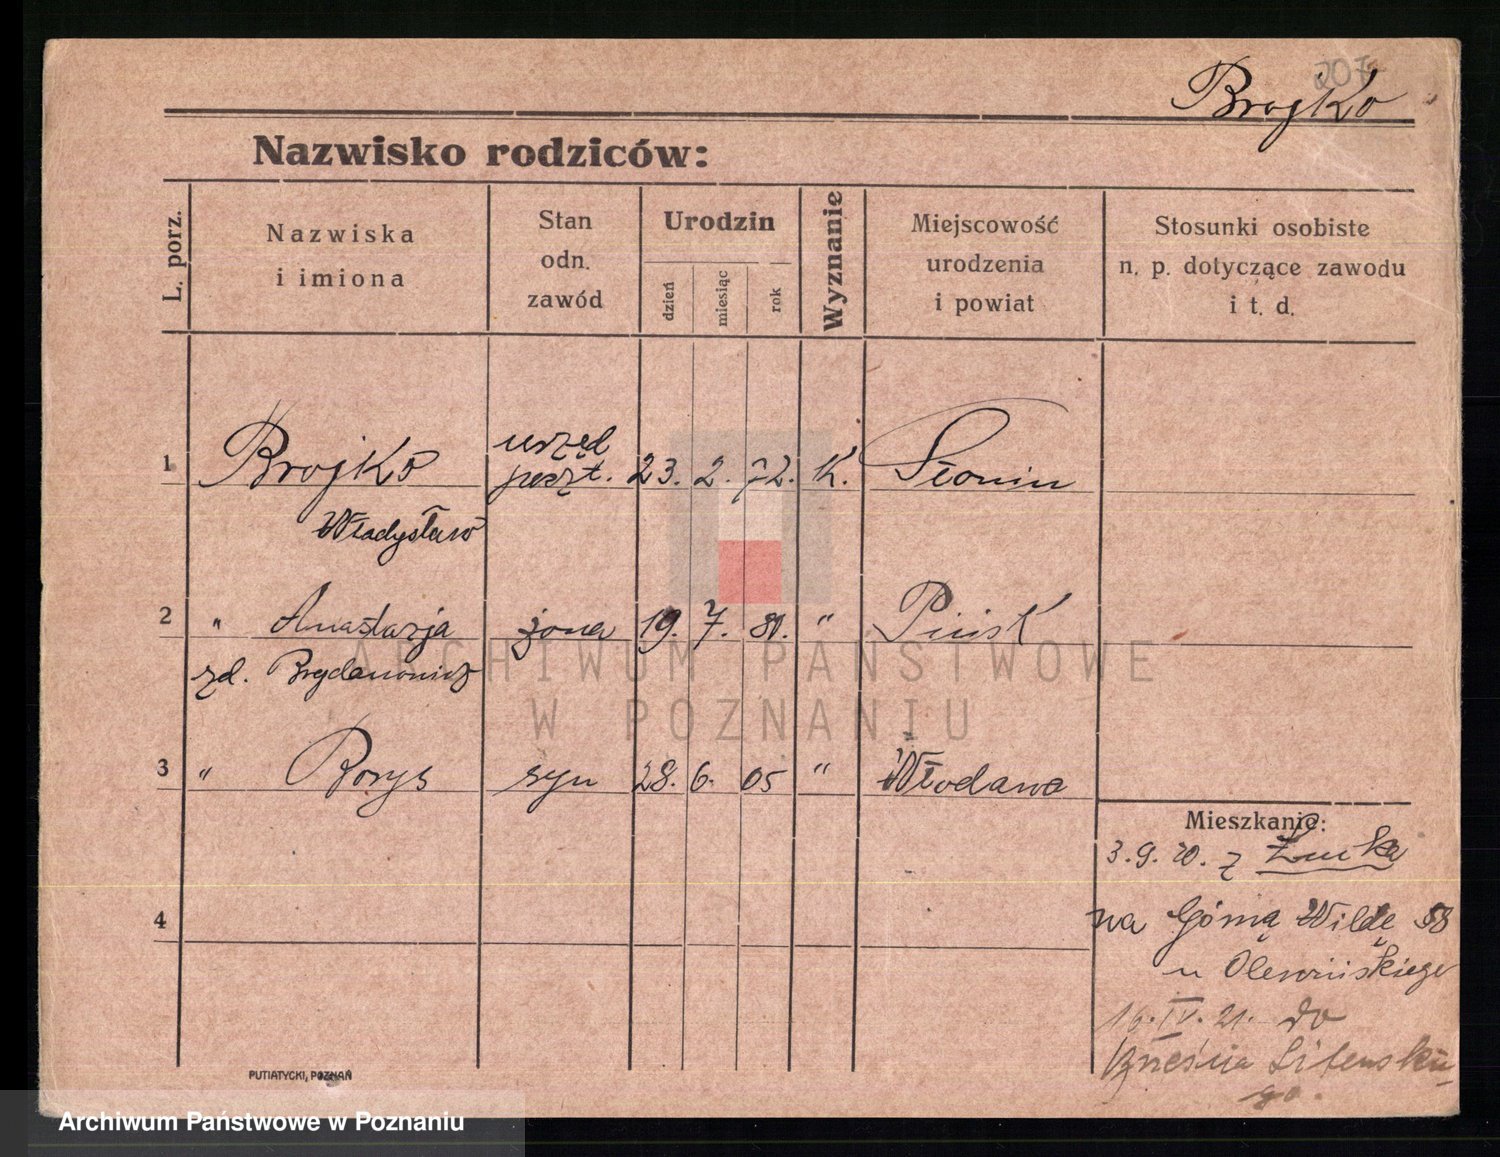 207
Brojko
Nazwisko rodziców:
L. porz.
Nazwiska
i imiona
Stan
odn.
zawód
Urodzin
dzień
miesiąc
rok
Wyznanie
Miejscowość
urodzenia
i powiat
Stosunki osobiste
n. p. dotyczące zawodu
i t. d.
1 Brojko urzęd poczt. 23. 2. 72. K. Słonim
Władysław
2 " Anastazja żona 19. 7. 80. " Pińsk
zd. Bogdanowicz
3 " Borys syn 28. 6. 05 " Włodawa
4
Mieszkanie:
3. 9. 20. z
na Górną Wildę 58
u Olewińskiego
16. IV. 21. do
Brześcia Litewskie-
go.
PUTIATYCKI, POZNAŃ
ARCHIWUM PAŃSTWOWE
W POZNANIU
Archiwum Państwowe w Poznaniu